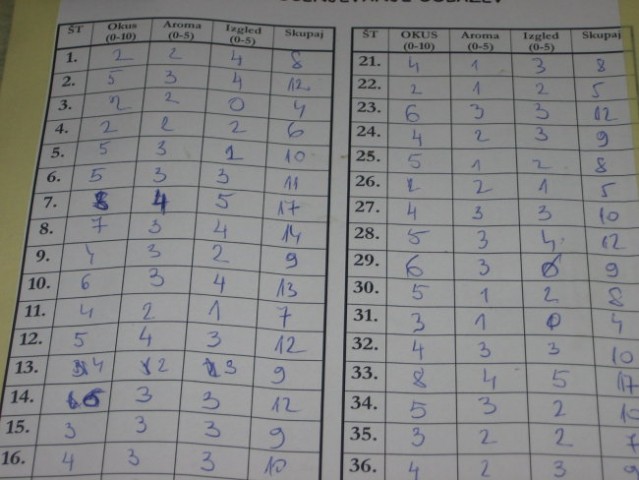 ŠT Okus (0-10) Aroma (0-5) Izgled (0-5) Skupaj
1. 2 2 4 8
2. 5 3 4 12
3. 2 2 0 4
4. 2 2 2 6
5. 5 3 2 10
6. 5 3 3 11
7. 8 4 5 17
8. 7 3 4 14
9. 4 3 2 9
10. 6 3 4 13
11. 4 2 1 7
12. 5 4 3 12
13. 4 2 3 9
14. 6 3 3 12
15. 3 3 3 9
16. 4 3 3 10
ŠT OKUS (0-10) Aroma (0-5) Izgled (0-5) Skupaj
21. 4 1 3 8
22. 2 1 2 5
23. 6 3 3 12
24. 4 2 3 9
25. 5 1 2 8
26. 2 2 1 5
27. 4 3 3 10
28. 5 3 4 12
29. 6 3 0 9
30. 5 1 2 8
31. 3 1 0 4
32. 4 3 3 10
33. 8 4 5 17
34. 5 3 2 10
35. 3 2 2 7
36. 4 2 3 9